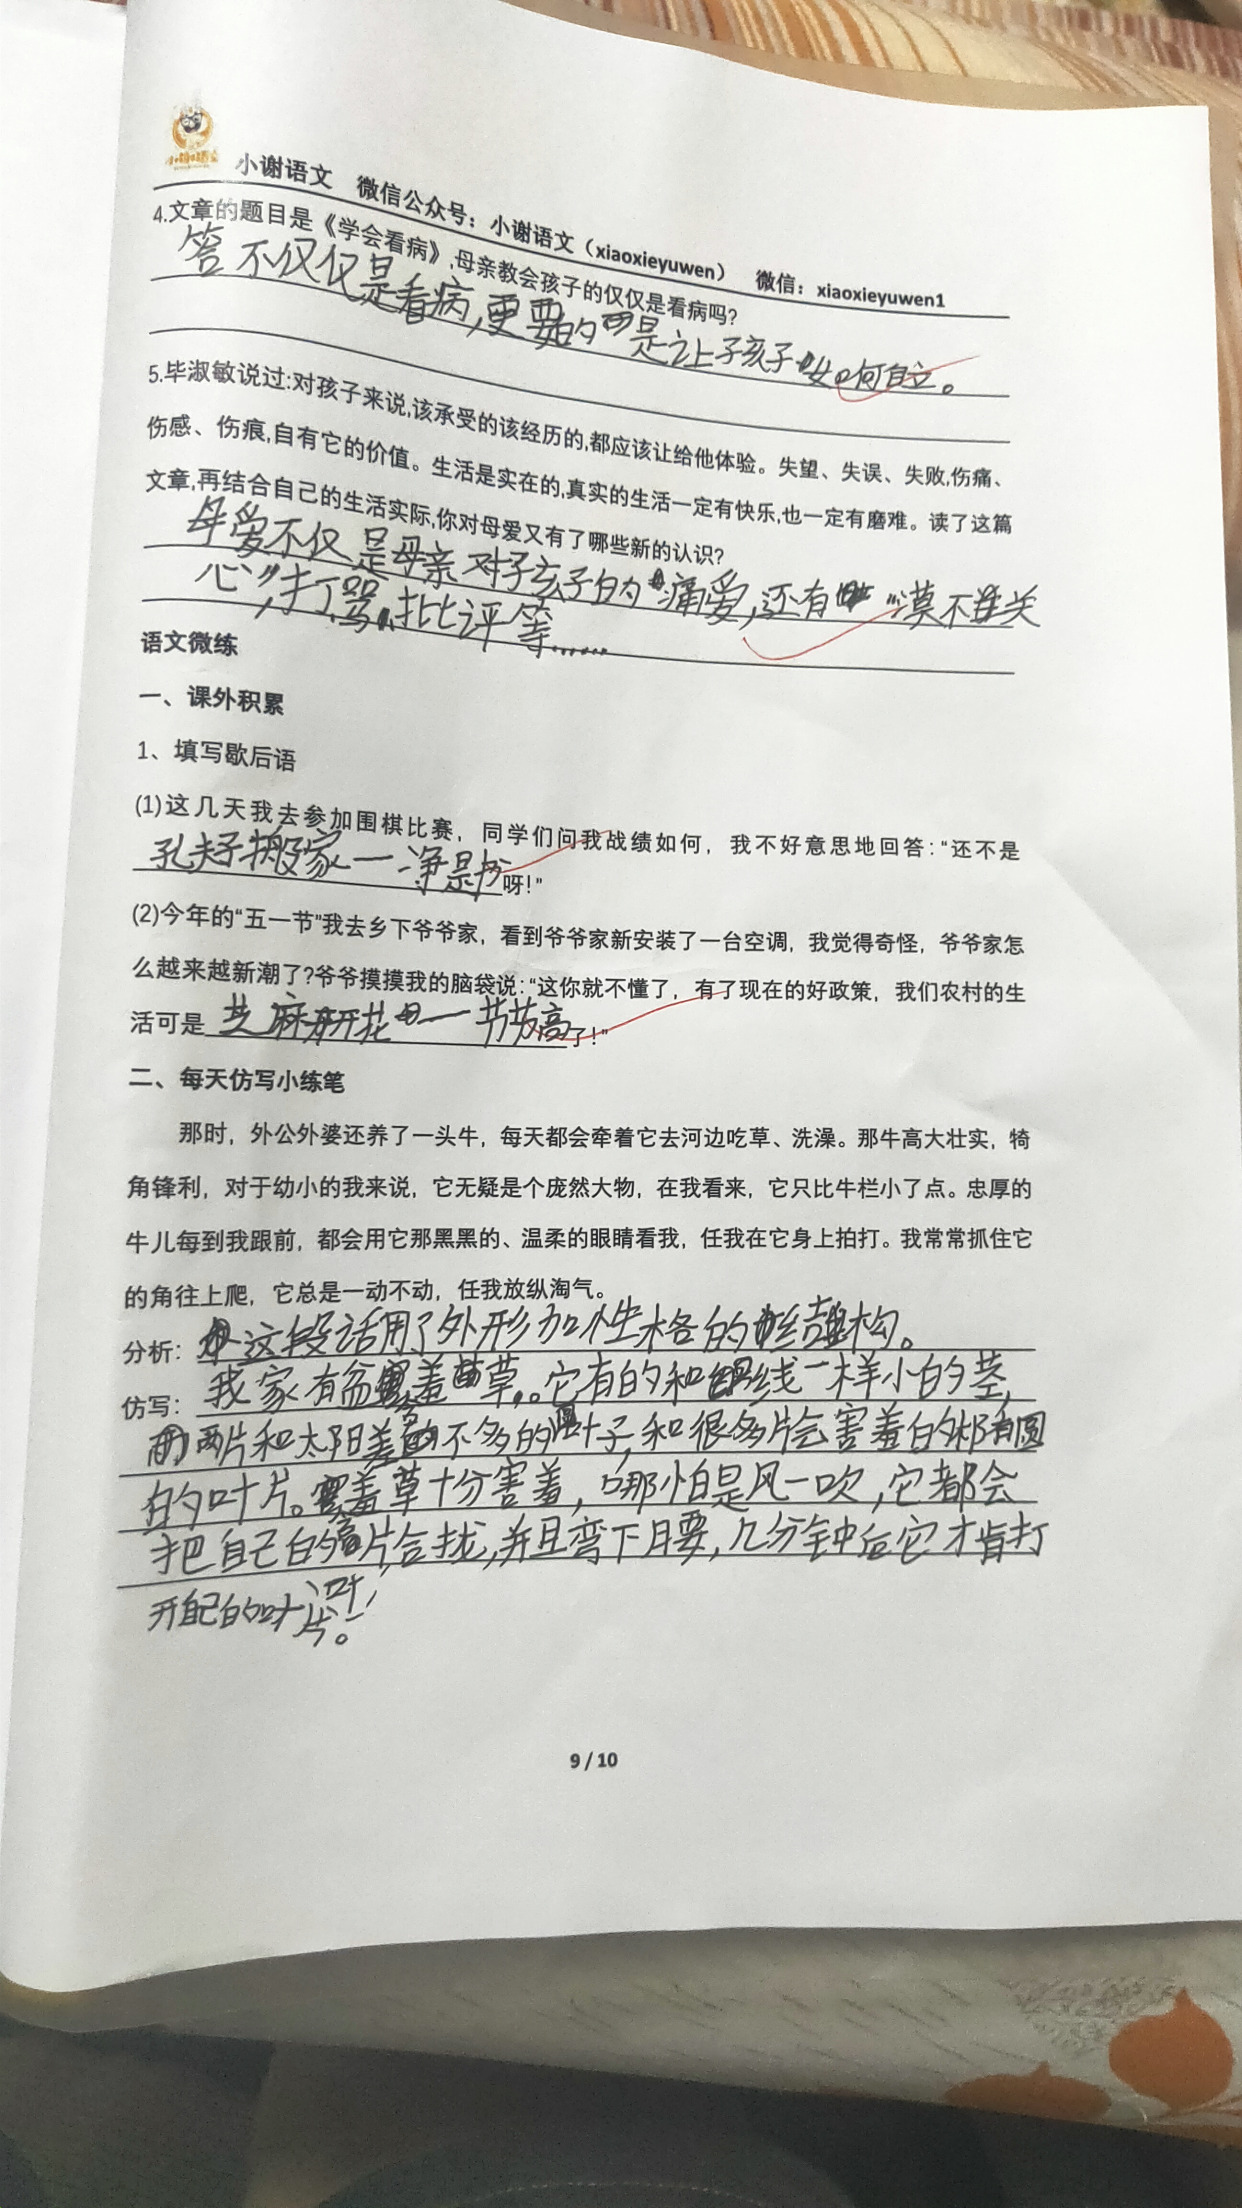 小谢语文 微信公众号：小谢语文（xiaoxieyuwen） 微信：xiaoxieyuwen1
4.文章的题目是《学会看病》,母亲教会孩子的仅仅是看病吗?
答不仅仅是看病,更要的是让子孩子如何自立。
5.毕淑敏说过:对孩子来说,该承受的该经历的,都应该让给他体验。失望、失误、失败,伤痛、
伤感、伤痕,自有它的价值。生活是实在的,真实的生活一定有快乐,也一定有磨难。读了这篇
文章,再结合自己的生活实际,你对母爱又有了哪些新的认识?
母爱不仅是母亲对子孩子的痛爱,还有“漠不关
心”,打骂,批评等……
语文微练
一、课外积累
1、填写歇后语
(1)这几天我去参加围棋比赛，同学们问我战绩如何，我不好意思地回答:“还不是
孔夫子搬家一一净是书呀!”
(2)今年的“五一节”我去乡下爷爷家，看到爷爷家新安装了一台空调，我觉得奇怪，爷爷家怎
么越来越新潮了?爷爷摸摸我的脑袋说:“这你就不懂了，有了现在的好政策，我们农村的生
活可是芝麻开花一一节节高了!”
二、每天仿写小练笔
那时，外公外婆还养了一头牛，每天都会牵着它去河边吃草、洗澡。那牛高大壮实，犄
角锋利，对于幼小的我来说，它无疑是个庞然大物，在我看来，它只比牛栏小了点。忠厚的
牛儿每到我跟前，都会用它那黑黑的、温柔的眼睛看我，任我在它身上拍打。我常常抓住它
的角往上爬，它总是一动不动，任我放纵淘气。
分析：这段话用了外形加性格的结构。
仿写：我家有盆害羞草。它有的和线一样小的茎,
两片和太阳差不多的叶子,和很多片会害羞的椭圆
的叶片。害羞草十分害羞，哪怕是风一吹,它都会
把自己的片合拢,并且弯下腰,几分钟后它才肯打
开自己的叶片。
9 / 10